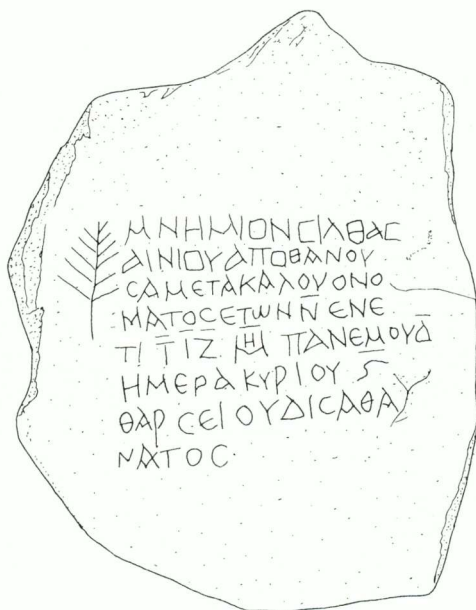 ΜΝΗΜΙΟΝCΙΛΘΑC
ΑΙΝΙΟΥΑΠΟΘΑΝΟΥ
CΑΜΕΤΑΚΑΛΟΥΟΝΟ
ΜΑΤΟCΕΤωΝΝ̅ΕΝΕ
ΤΙ Τ̅Ι̅Ζ̅ ΜΗ ΠΑΝΕΜΟΥΔ̅
ΗΜΕΡΑΚΥΡΙΟΥ Ϛ
ΘΑΡCΕΙΟΥΔΙCΑΘΑ
ΝΑΤΟC